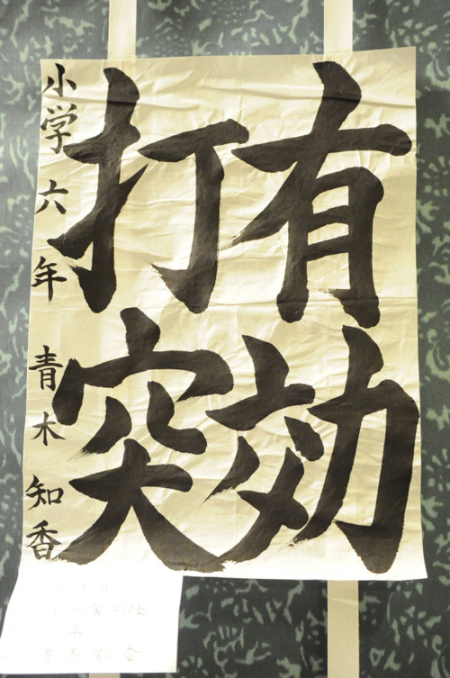 有効
打突
小学六年 青木知香